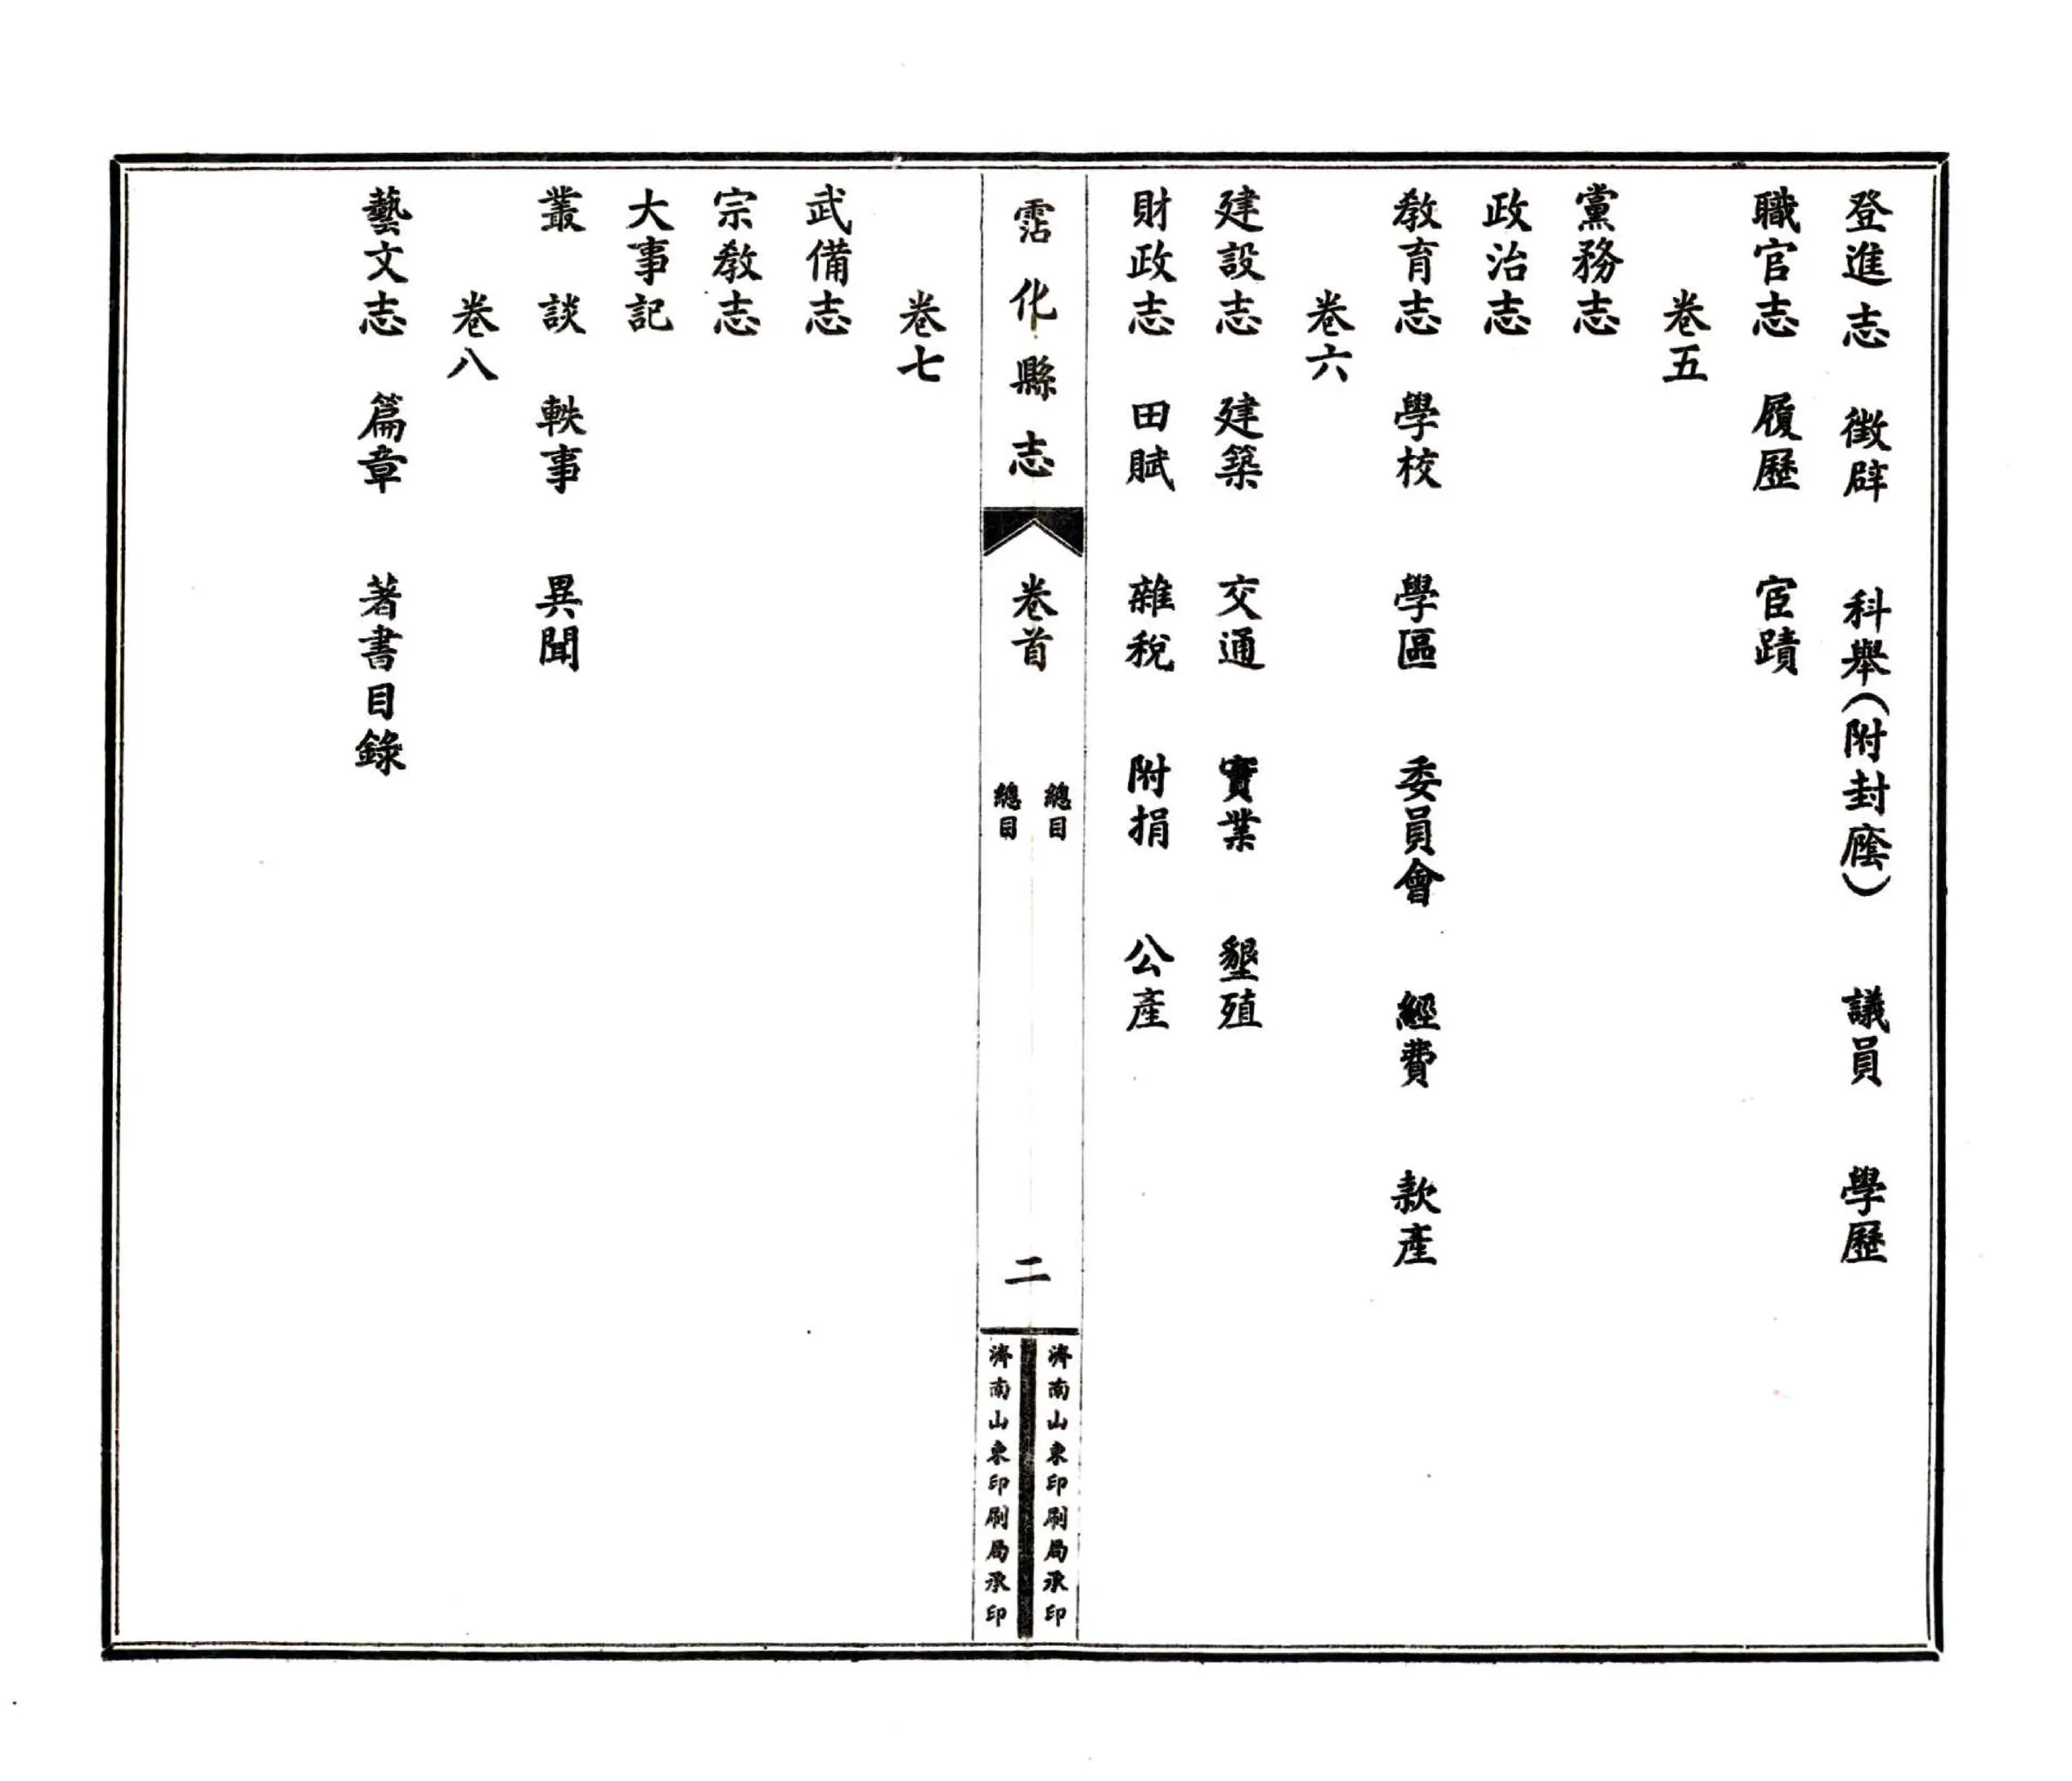 登進志　徵辟　科舉（附封廕）　議員　學歷
職官志　履歷　宦蹟
卷五
黨務志
政治志
教育志　學校　學區　委員會　經費　款產
卷六
建設志　建築　交通　實業　墾殖
財政志　田賦　雜稅　附捐　公產
霑化縣志
卷首
總目
總目
二
濟南山東印刷局承印
濟南山東印刷局承印
卷七
武備志
宗教志
大事記
叢談　軼事　異聞
卷八
藝文志　篇章　著書目錄